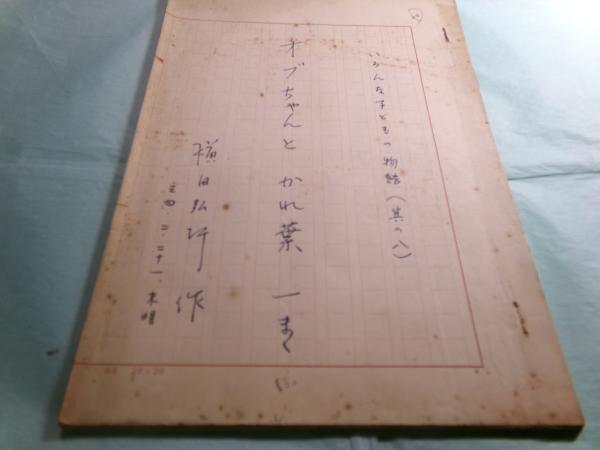 いろんな子どもの物語（其の八）
オブちゃんと かれ葉 一まく
横田弘行 作
二・二十一、未明
20×20